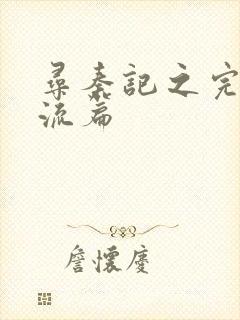 尋秦記之完
流篇
詹懷慶